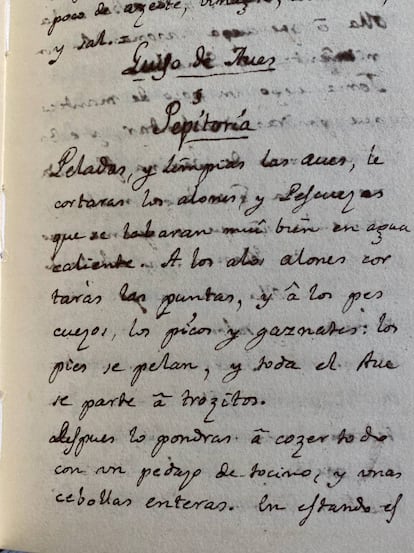 poco de azeyte, vinagre,
y sal.
Guiso de Aves
Pepitoría
Peladas, y limpias las aves, te
cortaras los alones, y Pescuezos
que se labaran muy bien en agua
caliente. A los alones cor
tarás las puntas, y â los pes
cuezos, los picos y gaznates: los
pies se pelan, y toda el Ave
se parte â trozitos.
Despues lo pondras â cozer todo
con un pedazo de tocino, y unas
cebollas enteras. En estando es